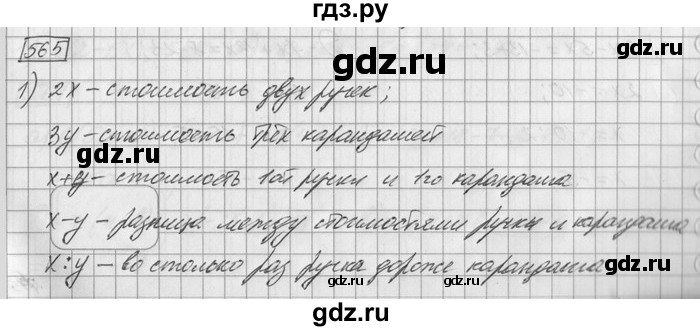 гдз.ру
565
gdz.ru
gdz.ru
1) 2x – стоимость двух ручек;
3y – стоимость трёх карандашей
gdz.ru
gdz.ru
x+y – стоимость 1ой ручки и 1го карандаша
x-y – разница между стоимостьями ручки и карандаша
x:y – во столько раз ручка дороже карандаша
gdz.ru
gdz.ru